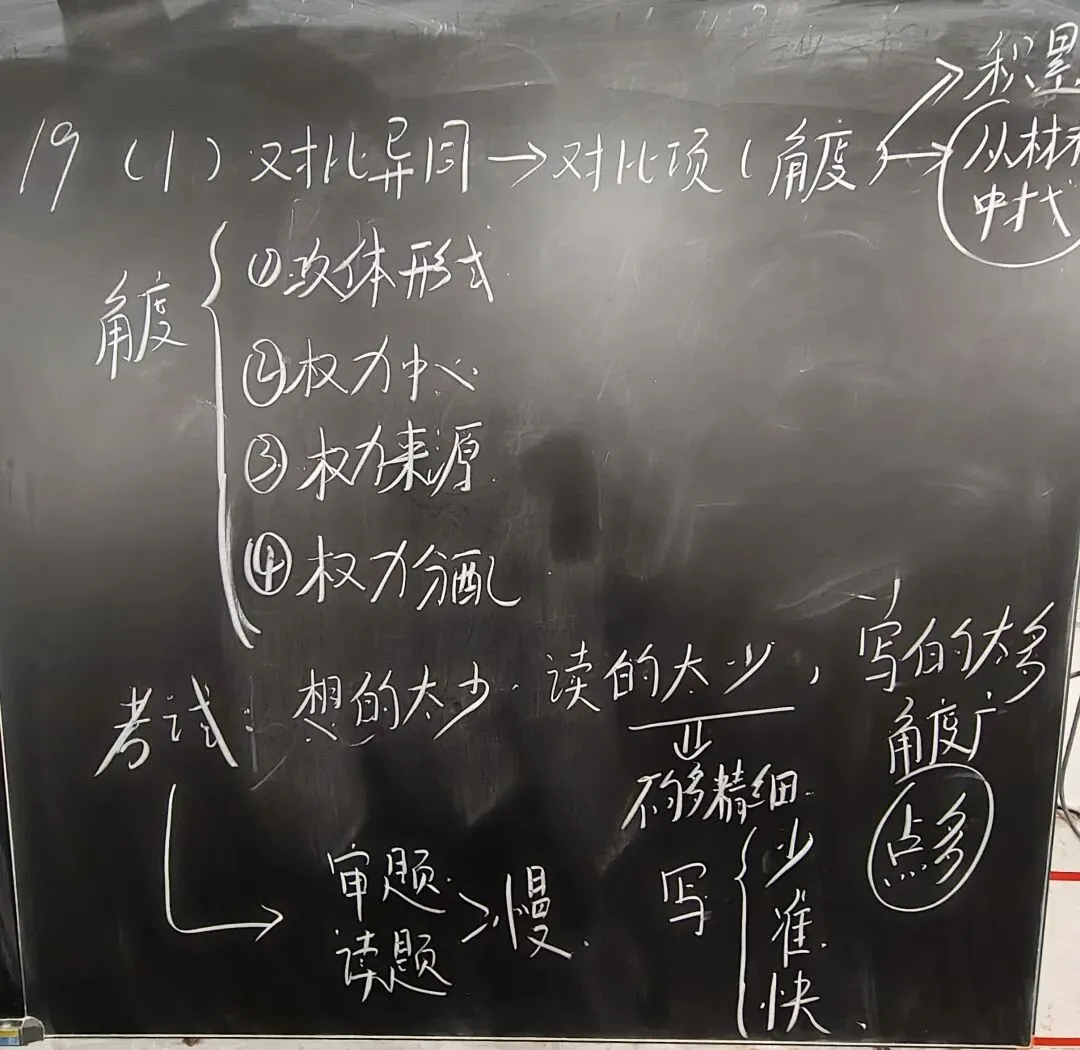 积累
19 (1) 对比异同→对比项(角度)→从材料中找
角度
①政体形式
②权力中心
③权力来源
④权力分配
考试: 想的太少. 读的太少, 写的太多
不够精细.
角度广
点多
审题.
读题
>慢.
写
少
准.
快.